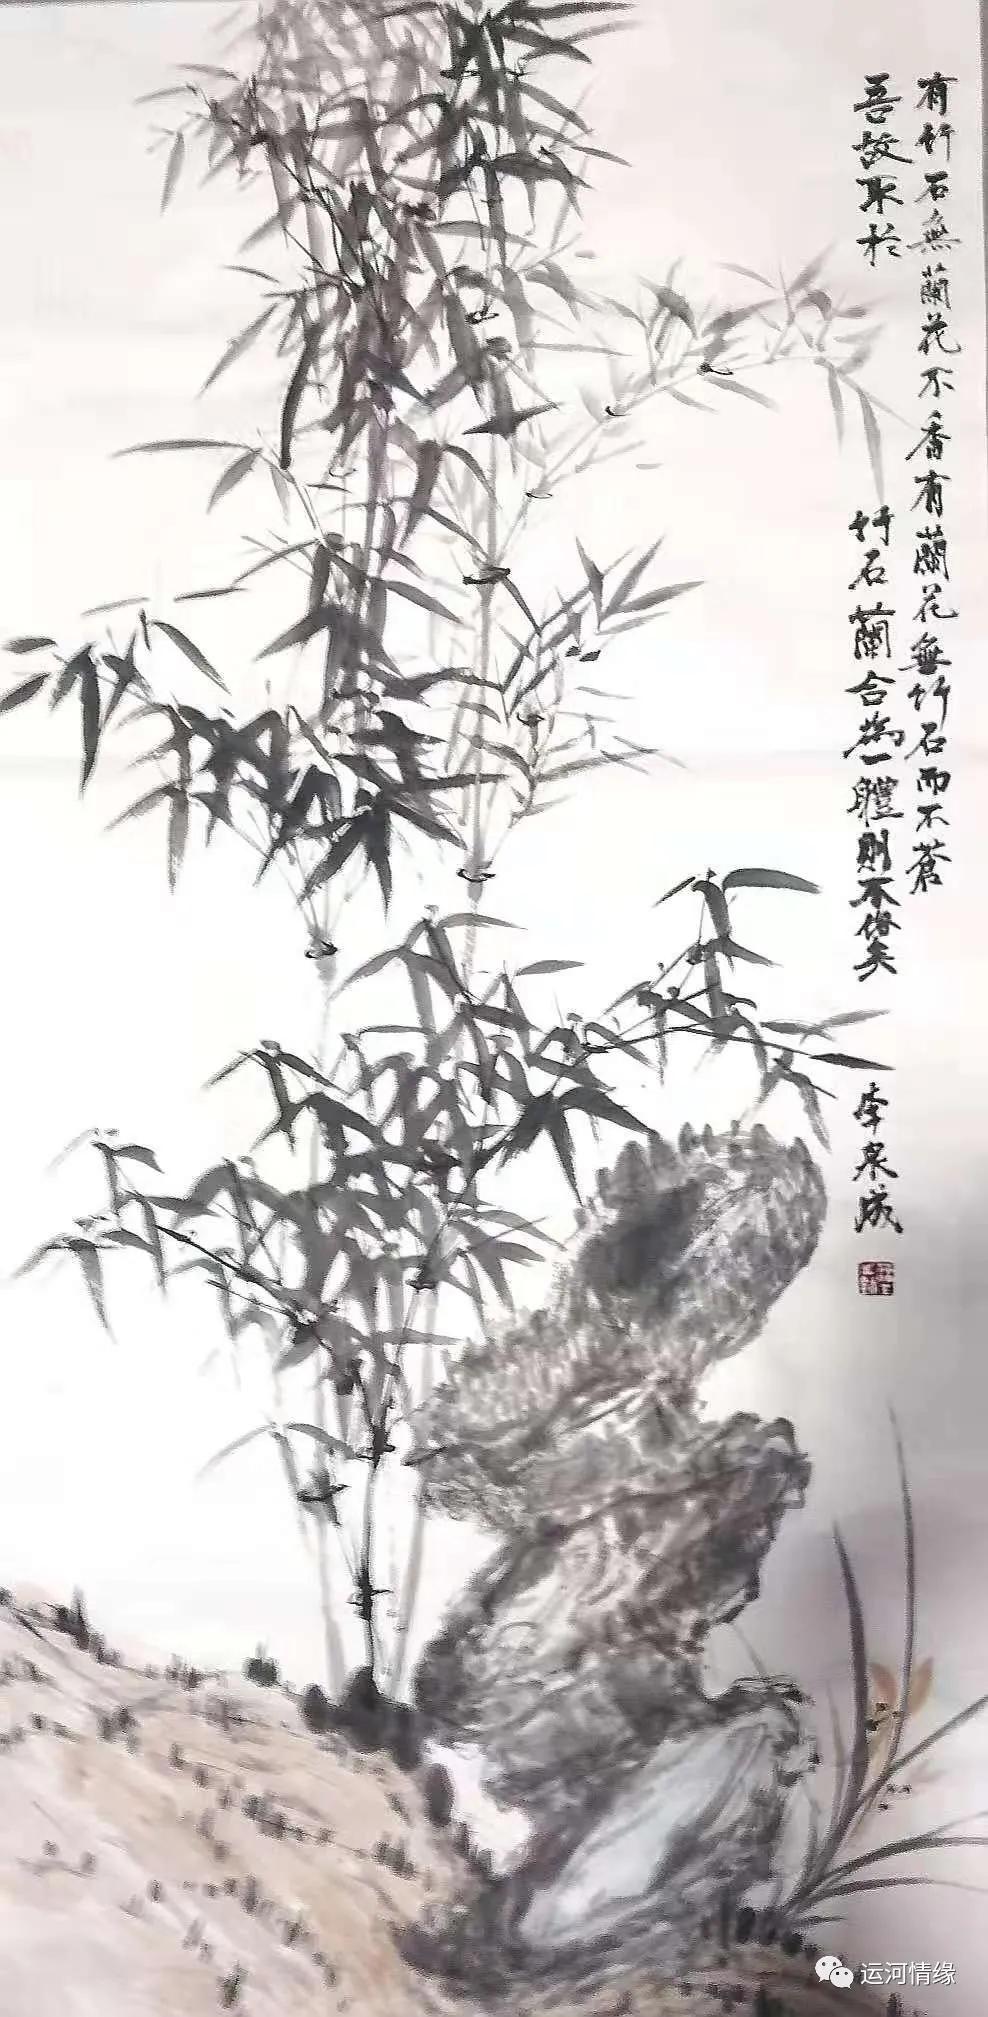 有竹石無蘭花不香有蘭花無竹石而不蒼
吾故取於
竹石蘭合為一體則不俗矣
李泉成
运河情缘